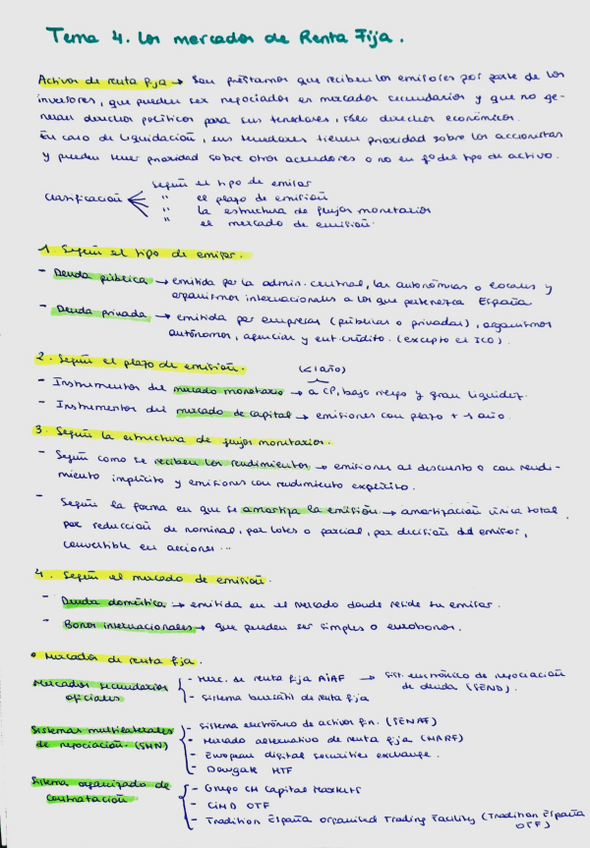 Tema 4. Los mercados de Renta Fija.
Activos de renta fija → Son préstamos que reciben los emisores por parte de los
inversores, que pueden ser negociados en mercados secundarios y que no ge-
neran derechos políticos para sus tenedores, sólo derechos económicos.
En caso de liquidación, sus tenedores tienen prioridad sobre los accionistas
y pueden tener prioridad sobre otros acreedores o no en fº del tipo de activo.
Clasificación
Según el tipo de emisor
" el plazo de emisión
" la estructura de flujos monetarios
" el mercado de emisión.
1. Según el tipo de emisor.
- Deuda pública → emitida por la admin. central, las autonómicas o locales y
organismos internacionales a los que pertenezca España
- Deuda privada → emitida por empresas (públicas o privadas), organismos
autónomos, agencias y ent. crédito. (excepto el ICO).
2. Según el plazo de emisión.
(<1año)
- Instrumentos del mercado monetario → a CP, bajo riesgo y gran liquidez.
- Instrumentos del mercado de capital → emisiones con plazo + 1 año.
3. Según la estructura de flujos monetarios.
- Según como se reciben los rendimientos → emisiones al descuento o con rendi-
miento implícito y emisiones con rendimiento explícito.
- Según la forma en que se amortiza la emisión → amortización única total,
por reducción de nominal, por lotes o parcial, por decisión del emisor,
convertible en acciones...
4. Según el mercado de emisión.
- Deuda doméstica → emitida en el mercado donde reside su emisor.
- Bonos internacionales → que pueden ser simples o eurobonos.
• Mercados de renta fija.
Mercados secundarios
oficiales
- Merc. de renta fija AIAF → Sist. electrónico de negociación
de deuda (SEND).
- Sistema bursátil de renta fija
Sistemas multilaterales
de negociación. (SMN)
- Sistema electrónico de activos fin. (SENAF)
- Mercado alternativo de renta fija (MARF)
- European digital securities exchange.
- Dowgate MTF
Sistema organizado de
contratación
- Grupo CM Capital Markets
- CIMD OTF
- Tradition España Organised Trading Facility (Tradition España
OTF)